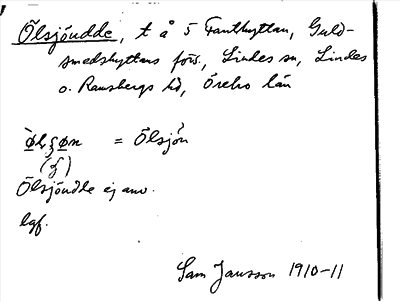 Ölsjöudde, t å 5 Fanthyttan, Guld-
smedshyttans förs., Lindes sn, Lindes
o. Ramsbergs hd, Örebro län
= Ölsjön
Ölsjöudde ej anv.
bgf.
Sam Jansson 1910-11